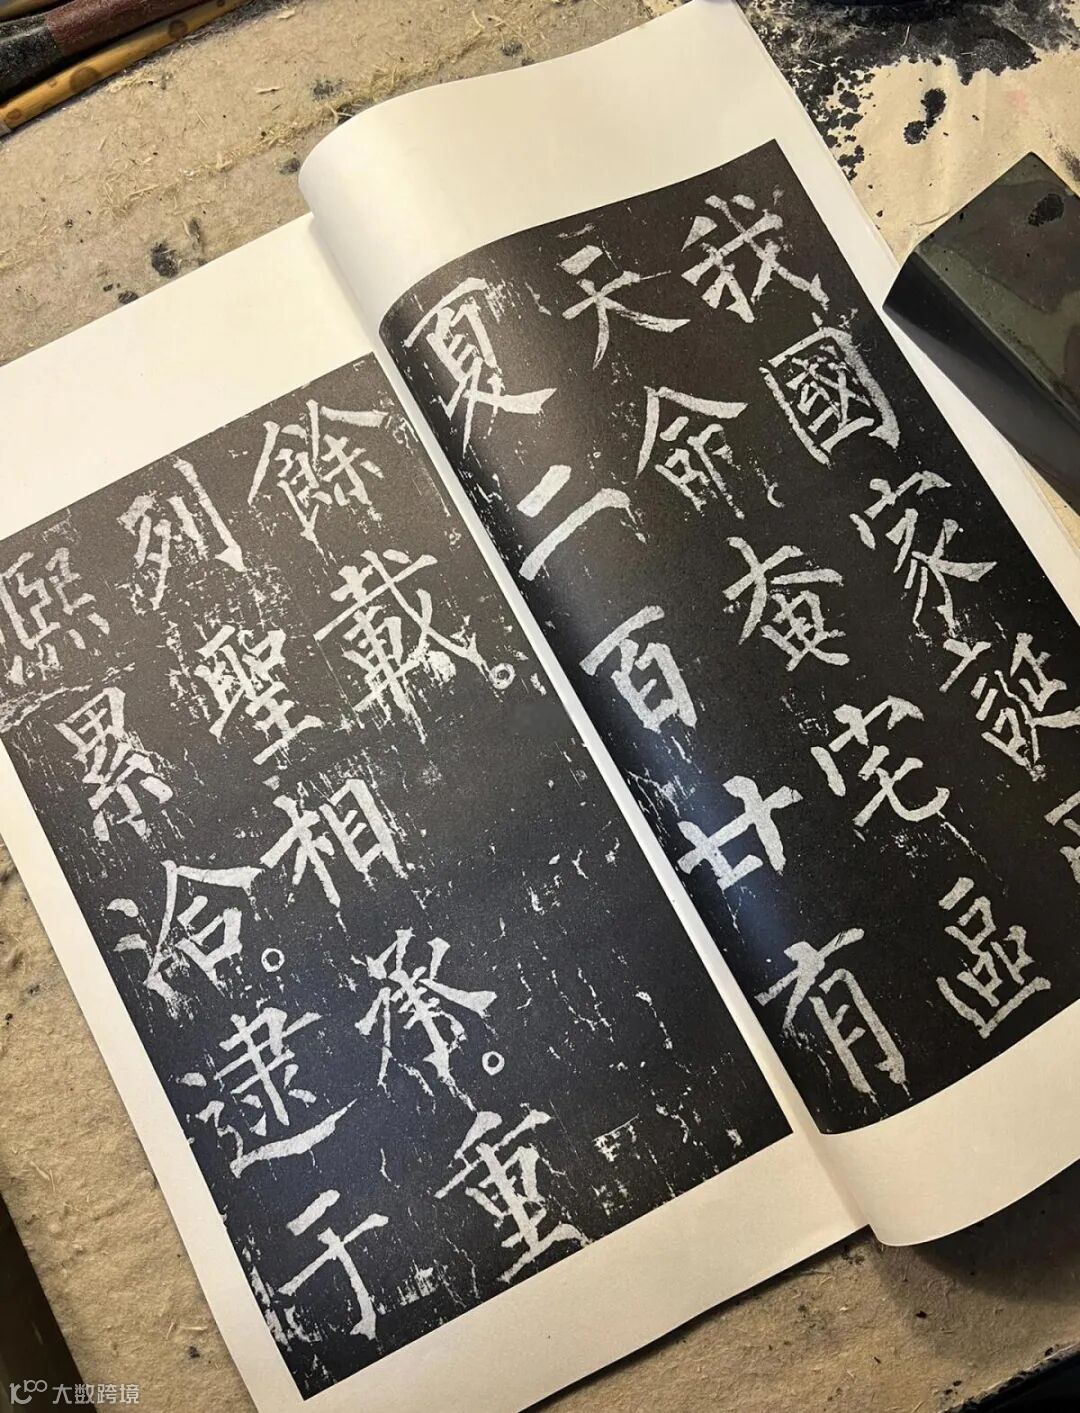 我國家誕
天命奄宅區
夏二百廿有
餘載。
列聖相承。重
熙累洽。逮于
大数跨境